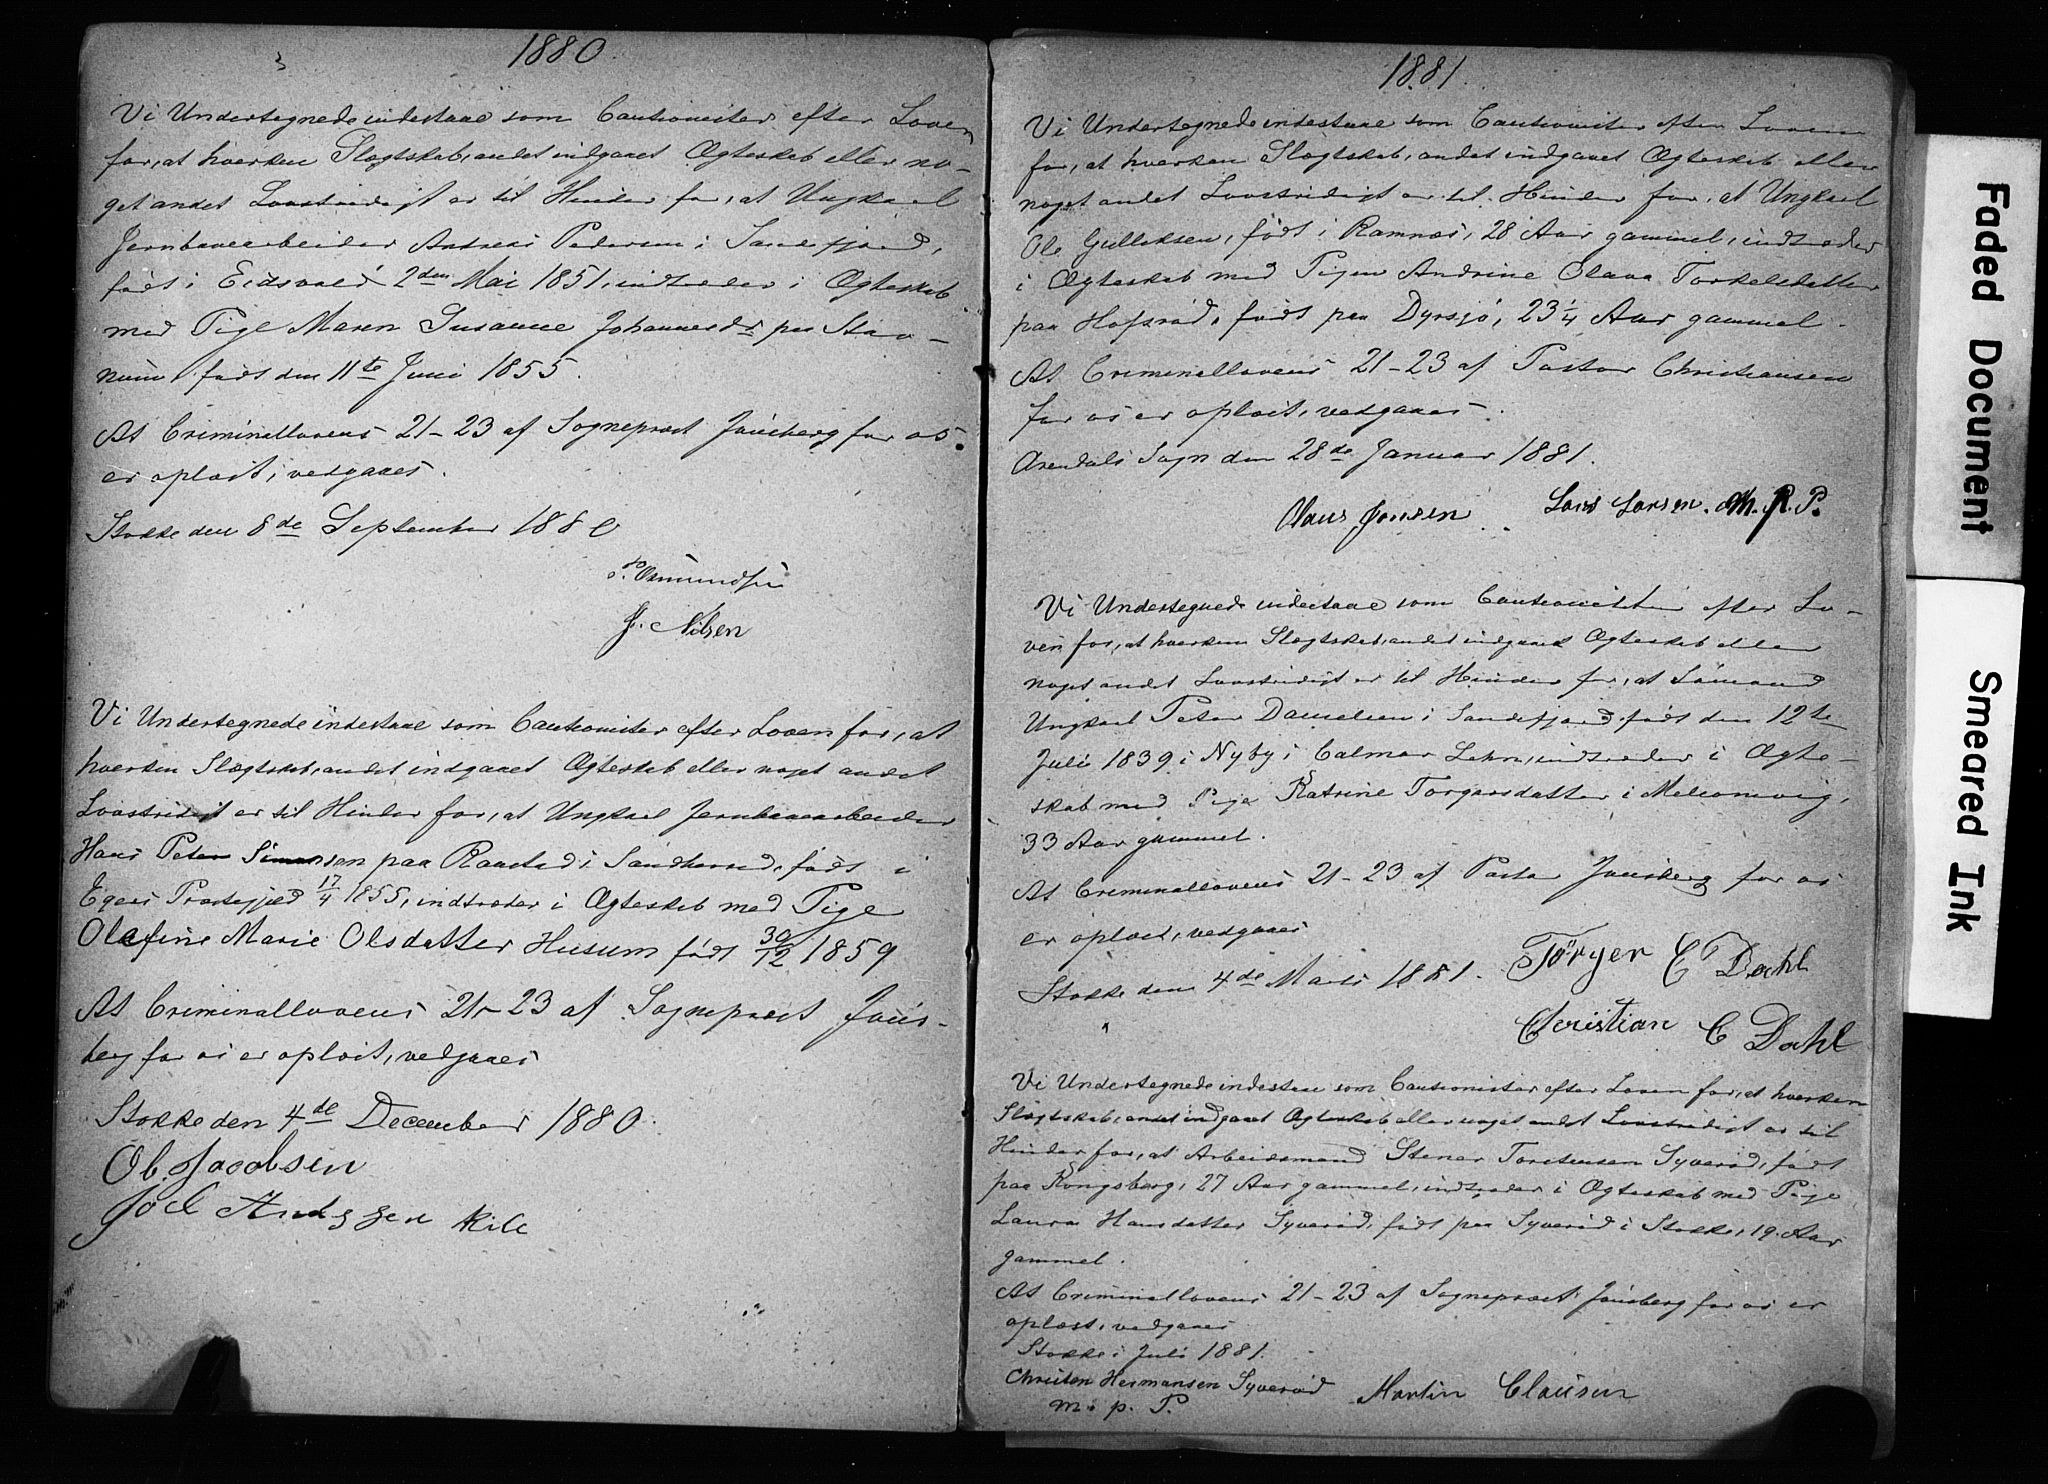 1880
Vi Undertegnede indestaae som Cautionister efter Loven
for, at hverken Slægtskab, andet indgaaet Ægteskab eller no-
get andet Lovstridigt er til Hinder for, at Ungkarl
Jernbanearbeider Andreas Pedersen i Sandefjord,
født i Eidsvold 2den Mai 1851, indtræder i Ægteskab
med Pige Maren Susanne Johannesdr paa Stav-
num, født den 11te Juni 1855.
At Criminallovens 21-23 af Sogneprest Jonsberg for os
er oplæst, vedgaaes.
Stokke den 8de September 1880
P. Osmundsen
J. Nilsen
Vi Undertegnede indestaae som Cautionister efter Loven for, at
hverken Slægtskab, andet indgaaet Ægteskab eller noget andet
Lovstridigt er til Hinder for, at Ungkarl Jernbanearbeider
Hans Peter Simensen paa Raastad i Sandherred, født i
Egers Præstegjeld 17/4 1855, indtræder i Ægteskab med Pige
Olefine Marie Olsdatter Husum født 30/12 1859
At Criminallovens 21-23 af Sogneprest Jons-
berg for os er oplæst, vedgaaes
Stokke den 4de December 1880.
Ob. Jacobsen
Joel Andssen Kile
1881.
Vi Undertegnede indestaae som Cautionister efter Loven
for, at hverken Slægtskab, andet indgaaet Ægteskab eller
noget andet Lovstridigt er til Hinder for, at Ungkarl
Ole Gulliksen, født i Ramnæs, 28 Aar gammel, indtræder
i Ægteskab med Pigen Andrine Olava Torkelsdatter
paa Hofsrød, født paa Dyrsjø, 23 1/4 Aar gammel.
At Criminallovens 21-23 af Pastor Christiansen
for os er oplæst, vedgaaes.
Arendals Sogn den 28de Januar 1881.
Olaus Jonsen Lars Larsen. M. P. P.
Vi Undertegnede indestaae som Cautionister efter Lo-
ven for, at hverken Slægtskab, andet indgaaet Ægteskab eller
noget andet Lovstridigt er til Hinder for, at Sømand
Ungkarl Peter Danielsen i Sandefjord født den 12te
Juli 1839 i Nyby i Calmar Lehn, indtræder i Ægte-
skab med Pige Katrine Torgersdatter i Melsomvig,
33 Aar gammel.
At Criminallovens 21-23 af Pastor Jonsberg for os
er oplæst, vedgaaes
Stokke den 4de Marts 1881. Törger C Dahl
Christian C Dahl
Vi Undertegnede indestaae som Cautionister efter Loven for, at hverken
Slægtskab, andet indgaaet Ægteskab eller noget andet Lovstridigt er til
Hinder for, at Arbeidsmand Stener Torstensen Syverød, født
paa Kongsberg, 27 Aar gammel, indtræder i Ægteskab med Pige
Laura Hansdatter Syverød, født paa Syverød i Stokke, 19 Aar
gammel.
At Criminallovens 21-23 af Sogneprest Jonsberg for os er
oplæst, vedgaaes
Stokke i Juli 1881.
Christen Hermansen Syverød Martin Clausen
m. p. P.
Faded Document
Smeared Ink